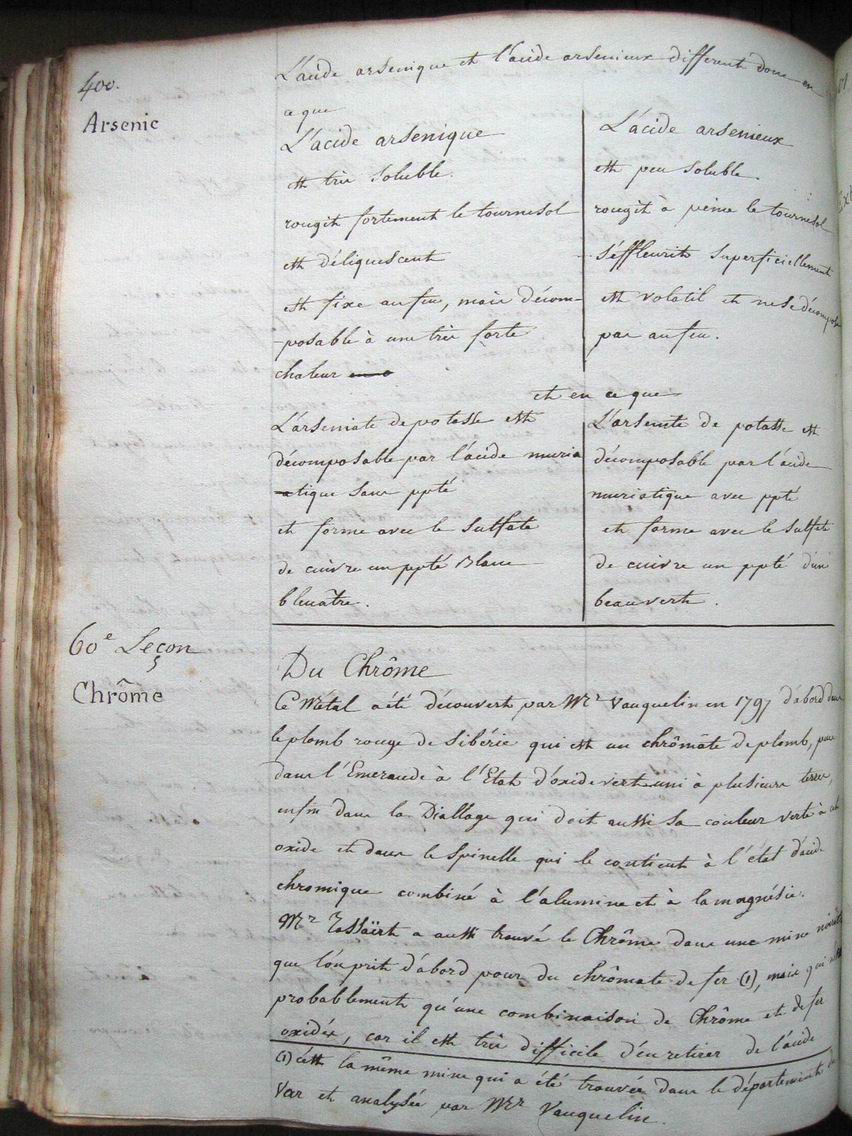 400.
Arsenic
L'acide arsenique et l'acide arsenieux different donc en
ce que
L'acide arsenique
est très soluble.
rougit fortement le tournesol
est déliquescent
est fixe au feu, mais décom-
posable à une très forte
chaleur
L'acide arsenieux
est peu soluble.
rougit à peine le tournesol
s'éffleurit superficiellement
est volatil et ne se décompose
pas au feu.
et en ce que
L'arseniate de potasse est
décomposable par l'acide muria
tique sans ppté
et forme avec le sulfate
de cuivre un ppté Blanc
bleuâtre.
L'arsenite de potasse est
décomposable par l'acide
muriatique avec ppté
et forme avec le sulfate
de cuivre un ppté d'un
beau vert.
60e Leçon
Chrôme
Du Chrôme
Ce Métal a été découvert par Mr Vauquelin en 1797 d'abord dans
le plomb rouge de Sibérie qui est un chrômate de plomb, puis
dans l'Emeraude à l'Etat d'oxide vert uni à plusieurs terres,
enfin dans la Diallage qui doit aussi sa couleur verte à cet
oxide et dans le Spinelle qui le contient à l'état d'acide
chromique combiné à l'alumine et à la magnésie.
Mr Tassaërt a aussi trouvé le Chrôme dans une mine
que l'on prit d'abord pour du chrômate de fer (1), mais qui
probablement qu'une combinaison de Chrôme et de fer
oxidés, car il est très difficile d'en retirer de l'acide
(1) c'est la même mine qui a été trouvée dans le département du
Var et analysée par Mr Vauquelin.